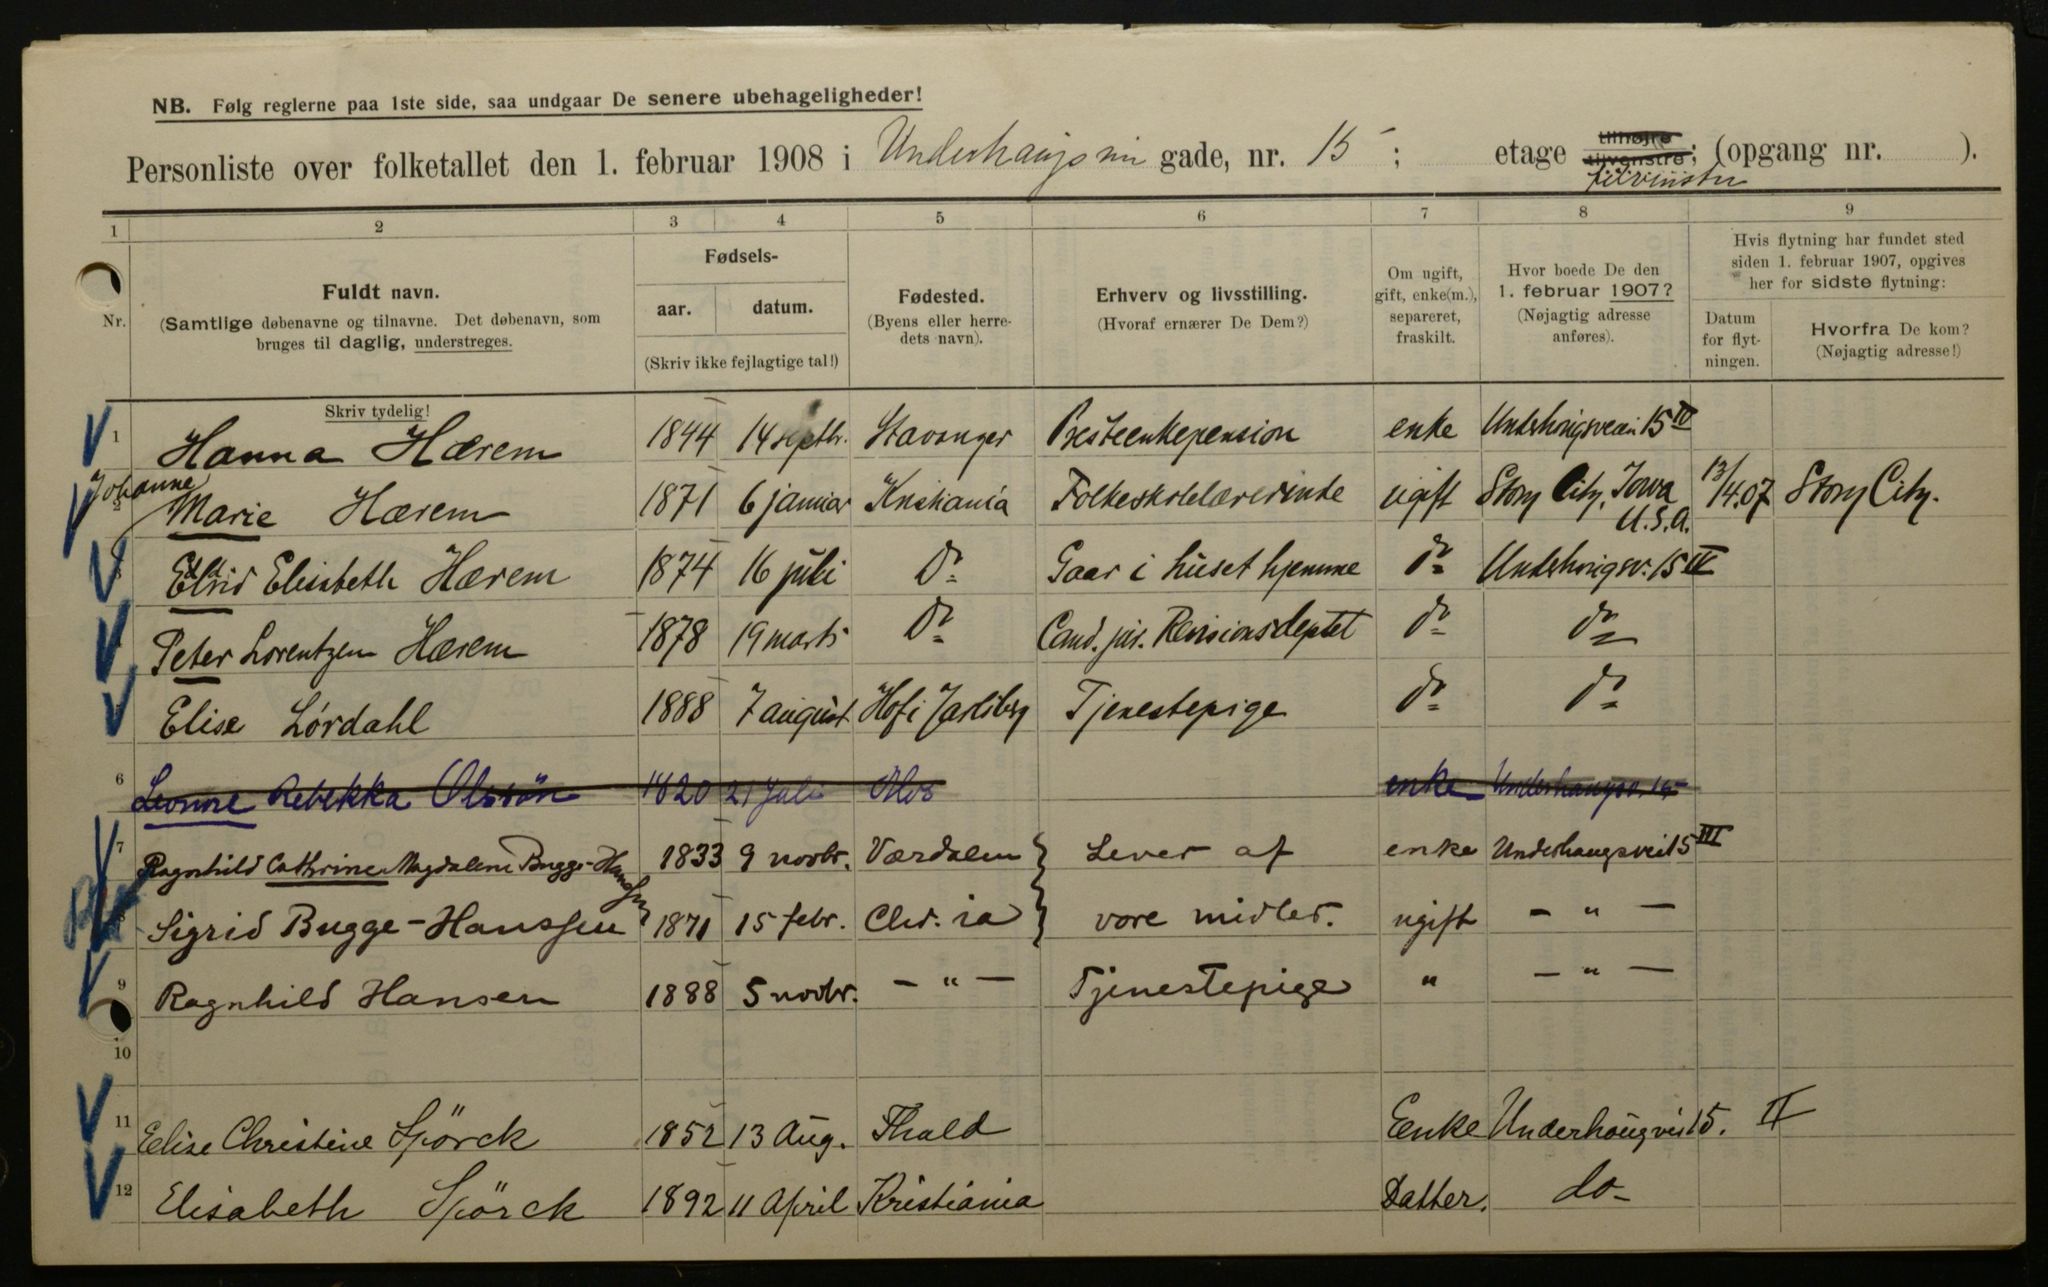 NB. Følg reglerne paa 1ste side, saa undgaar De senere ubehageligheder!
Personliste over folketallet den 1. februar 1908 i Underhaugsvei gade, nr. 15; etage tilhøjre tilvenstre; (opgang nr. ).
tilvenstre
1 2 3 4 5 6 7 8 9
Nr.
Fuldt navn.
(Samtlige døbenavne og tilnavne. Det døbenavn, som
bruges til daglig, understreges.
Skriv tydelig!
Fødsels-
aar. datum.
(Skriv ikke fejlagtige tal!)
Fødested.
(Byens eller herre-
dets navn).
Erhverv og livsstilling.
(Hvoraf ernærer De Dem?)
Om ugift,
gift, enke(m.),
separeret,
fraskilt.
Hvor boede De den
1. februar 1907?
(Nøjagtig adresse
anføres).
Hvis flytning har fundet sted
siden 1. februar 1907, opgives
her for sidste flytning:
Datum
for flyt-
ningen.
Hvorfra De kom?
(Nøjagtig adresse!)
1 Hanna Hærem 1844 14 septbr. Stavanger Presteenkepension enke Underhougsveien 15 IV
Johanne
2 Marie Hærem 1871 6 januar Kristiania Folkeskolelærerinde ugift Story City, Iowa U.S.A. 13/4.07 Story City.
3 Elisabeth Hærem 1874 16 juli Do Gaar i huset hjemme do Underhougsv. 15 IV
4 Peter Lorentzen Hærem 1878 19 marts Do Cand. jur. Revisionsdeptet do do
5 Elise Lørdahl 1888 7 august Hof i Jarlsberg Tjenestepige do do
6 Rebekka Olssøn 1820 21 Juli Mos enke Underhaugsv. 15
7 Ragnhild Cathrine Magdalene Bugge-Hanssen 1833 9 novbr. Værdalen } Lever af enke Underhaugsvei 15 III
8 Sigrid Bugge-Hanssen 1871 15 febr. Chr.ia } vore midler. ugift - " -
9 Ragnhild Hansen 1888 5 novbr. - " - Tjenestepige " - " -
10
11 Elise Christine Spörck 1852 13 Aug. Fhald Enke Underhougvei 15. II
12 Elisabeth Spörck 1892 11 April Kristiania Datter. do-